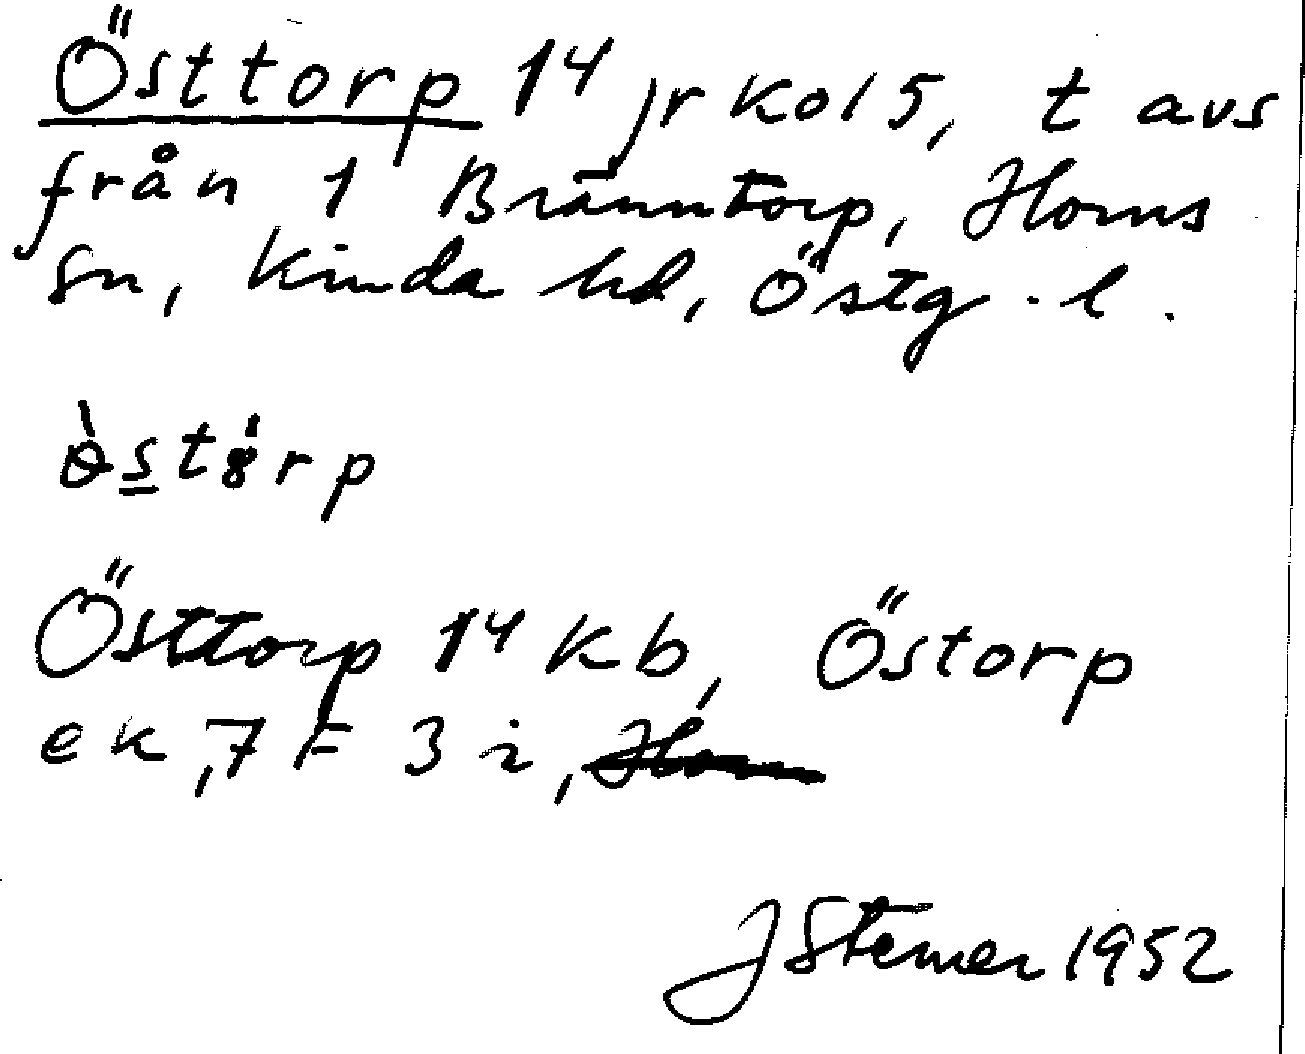 Östtorp 1⁴ jr kol 5, t avs
från 1 Bränntorp, Horns
sn, Kinda hd, Östg. l.
Östtorp 1⁴ kb, Östorp
ek, 7 F 3 i,
J Sterner 1952